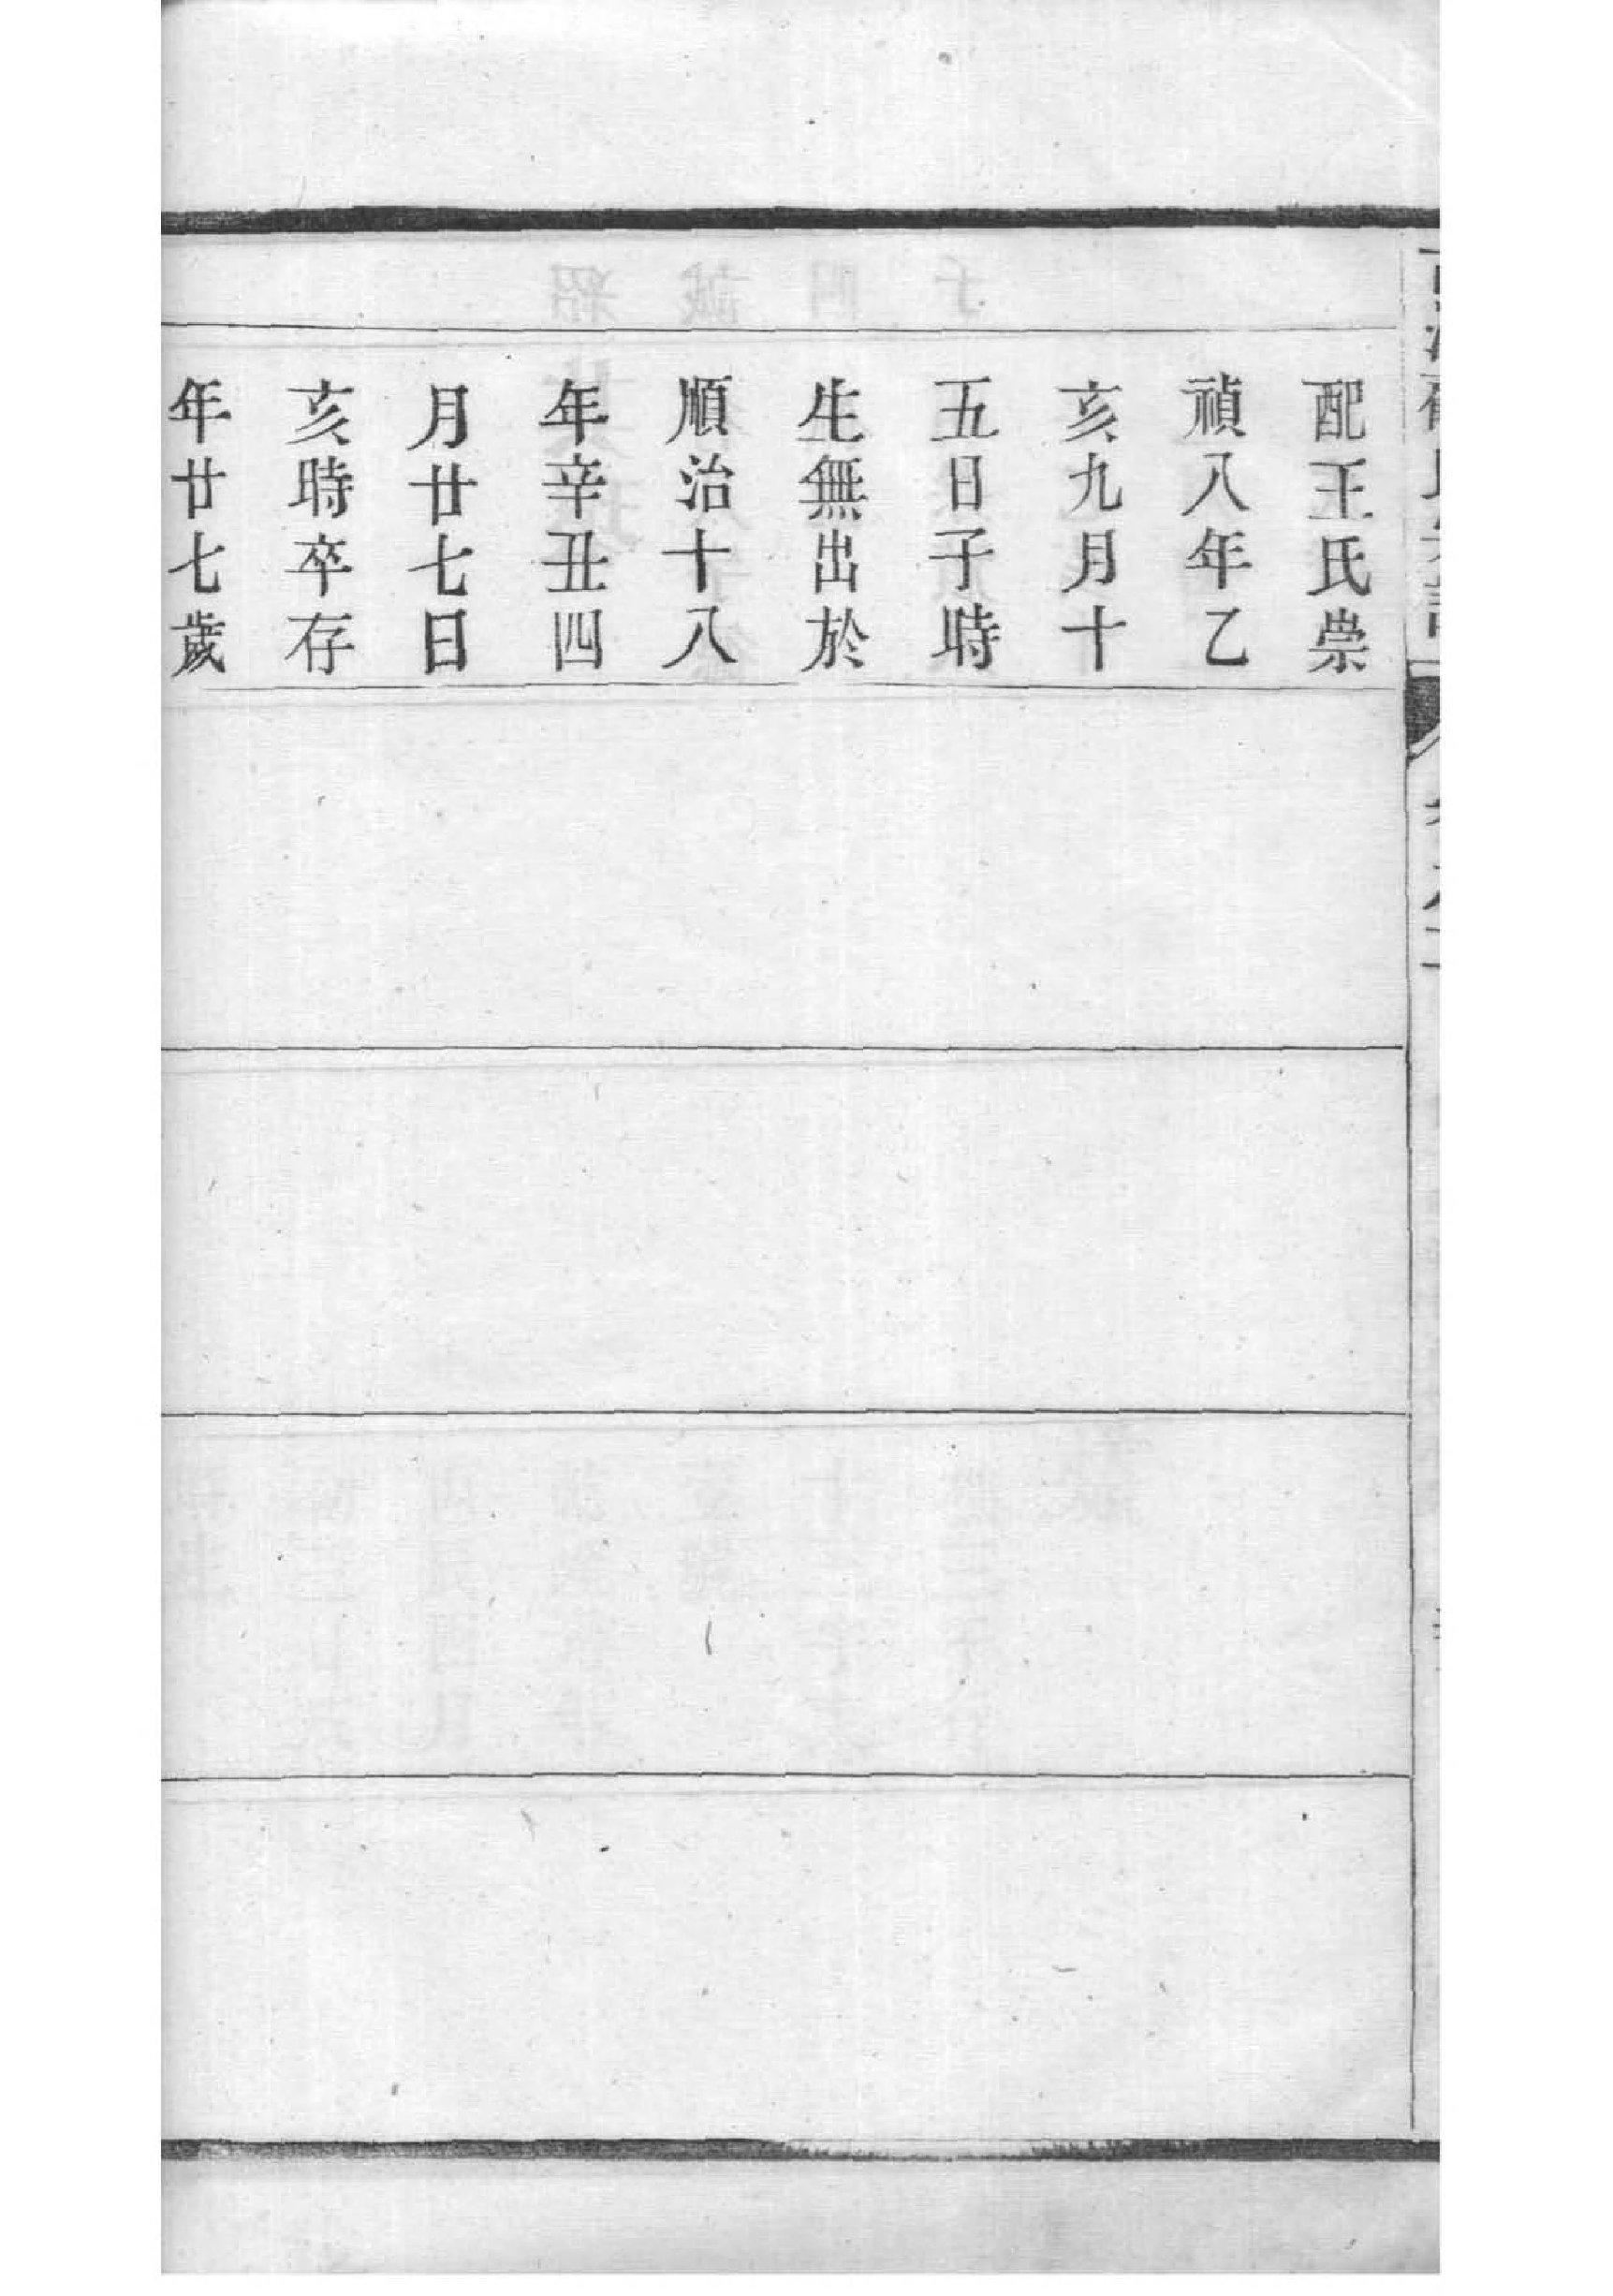 配王氏崇
禎八年乙
亥九月十
五日子時
生無出於
順治十八
年辛丑四
月廿七日
亥時卒存
年廿七歲